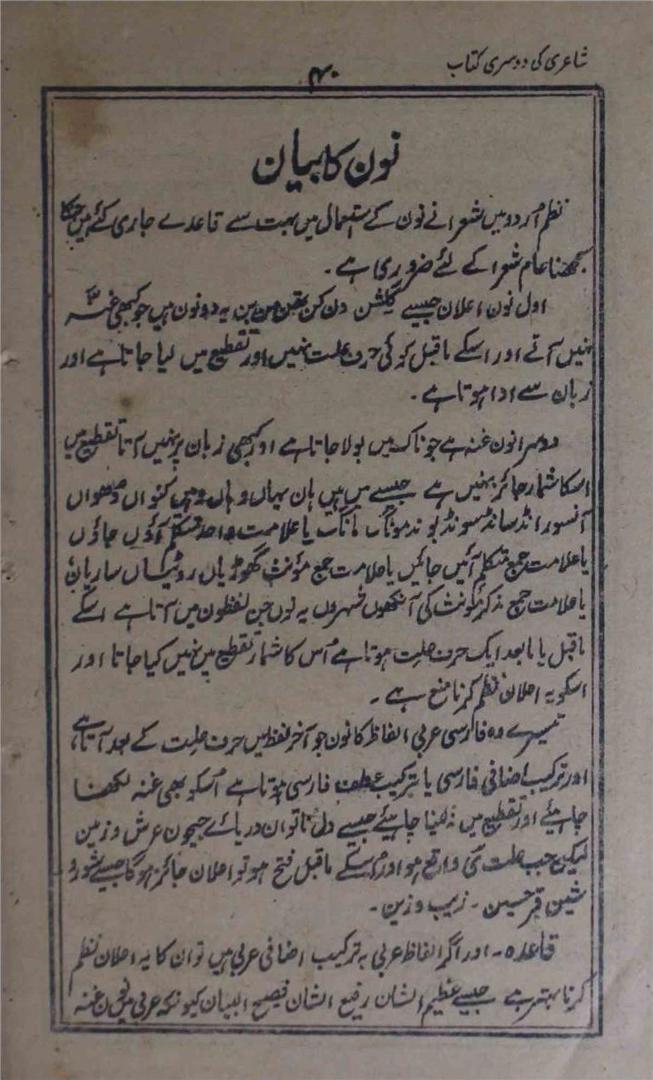 شاعری کی دوسری کتاب
۴۰
نون کا بیان
نظم اردو میں شعرا نے نون کے استعمال میں بہت سے قاعدے جاری کئے ہیں جنکا
سمجھنا عام شعرا کے لئے ضروری ہے۔
اول نون اعلان جیسے گلشن دن کن یہ دو نون ہیں جو کبھی غنہ
نہیں آتے اور اسکے ماقبل کوئی حرف علت نہیں اور تقطیع میں لیا جاتا ہے اور
زبان سے ادا ہوتا ہے۔
دوسرا نون غنہ ہے جو ناک میں بولا جاتا ہے اور کبھی زبان پر نہیں آتا تقطیع میں
اسکا شمار جائز نہیں ہے جیسے میں ہیں ہاں یہاں وہاں وہیں کنواں دھواں
آنسو رانڈ سانڈ سونڈ بوند مونگ مانگ یا علامت واحد متکلم آؤں جاؤں
یا علامت جمع متکلم آئیں جائیں یا علامت جمع مؤنث گھوڑیاں روٹیاں ساریاں
یا علامت جمع مذکر مؤنث کی آنکھوں شہروں یہ نون جن لفظوں میں آتا ہے اسکے
ماقبل یا مابعد ایک حرف علت ہوتا ہے اس کا شمار تقطیع میں نہیں کیا جاتا اور
اسکو بہ اعلان نظم کرنا منع ہے۔
تیسرے وہ فارسی عربی الفاظ کا نون جو آخر لفظ میں حرف علت کے بعد آتا ہے
اور ترکیب اضافی فارسی یا ترکیب عطف فارسی ہوتا ہے اسکو بھی غنہ لکھنا
چاہیئے اور تقطیع میں نہ لینا چاہیئے جیسے دل ناتواں دریائے جیحون عرش و زمین
لیکن جب علت ی واقع ہو اور اسکے ماقبل فتح ہو تو اعلان جائز ہوگا جیسے شور و
شین قبر حسین۔ زیب و زین۔
قاعدہ۔ اور اگر الفاظ عربی بہ ترکیب اضافی عربی ہیں تو ان کا بہ اعلان نظم
کرنا بہتر ہے جیسے عظیم الشان رفیع الشان فصیح البیان کیونکہ عربی میں نون غنہ